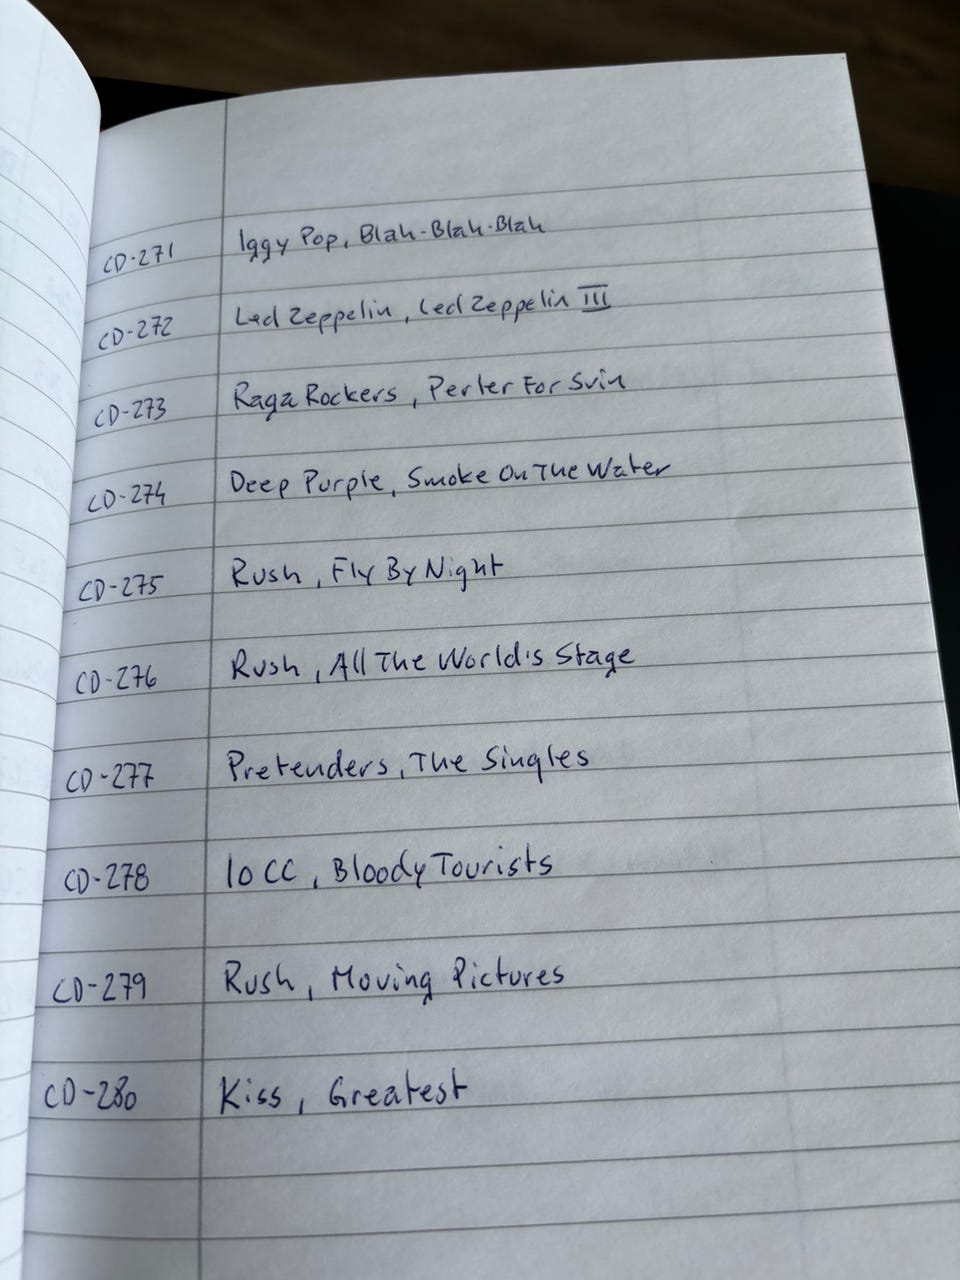 CD-271 Iggy Pop, Blah-Blah-Blah
CD-272 Led Zeppelin, Led Zeppelin III
CD-273 Raga Rockers, Perler For Svin
CD-274 Deep Purple, Smoke On The Water
CD-275 Rush, Fly By Night
CD-276 Rush, All The World's Stage
CD-277 Pretenders, The Singles
CD-278 10 CC, Bloody Tourists
CD-279 Rush, Moving Pictures
CD-280 Kiss, Greatest